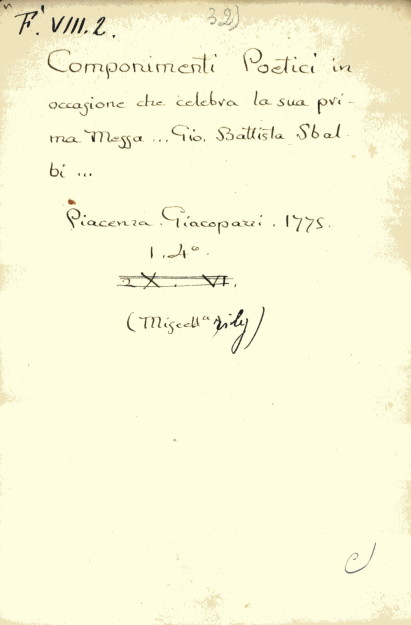 F.' VIII. 2.
32)
Componimenti Poetici in
occasione che celebra la sua pri-
ma Messa ... Gio. Battista Sbal-
bi ...
Piacenza. Giacopazzi. 1775.
1. 4º.
2 X. VI.
(Miscellª